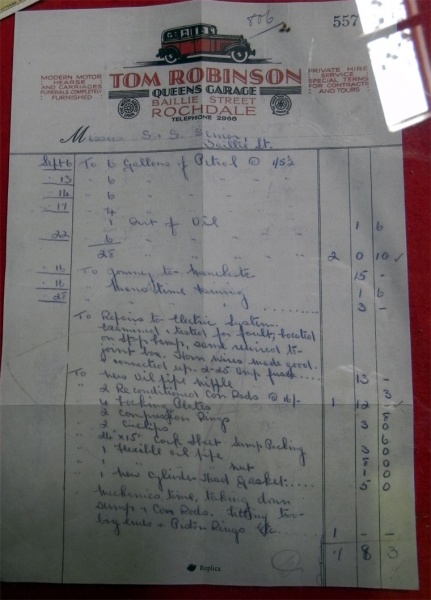 806
557
MODERN MOTOR
HEARSE
AND CARRIAGES
FUNERALS COMPLETELY
FURNISHED
TOM ROBINSON
QUEENS GARAGE
BAILLIE STREET
ROCHDALE
TELEPHONE 2968
PRIVATE HIRE
SERVICE
SPECIAL TERMS
FOR CONTRACTS
AND TOURS
Baillie St.
Sept 6 To 6 Gallons of Petrol @
13 " 6 " " "
14 " 6 " " "
17 " 4 " " "
" 1 Qut of Oil 1 6
22 " 6 " " "
28 2 0 10 ✓
16 To Journey to 15 -
16 " time 1 6
28 " " " 3 -
To Repairs to Electric System.
Examined & tested for fault, located
on Stop Lamp, some rewired to
joint box. Horn wires made good.
connected up. 2-25 amp fuses 13 -
To New Oil pipe nipple 3
" 2 Reconditioned Con Rods @ 16/- 1 12 -
" 4 Locking Plates
" 2 Compression Rings
" 2 Circlips
" Cork Sheet Sump Packing
" 1 Flexible oil pipe
" 1 " " " nut
" 1 New Cylinder Head Gasket 5 0
Mechanics time, taking down
sump & Con Rods. Fitting two
big ends & Piston Rings &c. 1 -
8 3
Replica